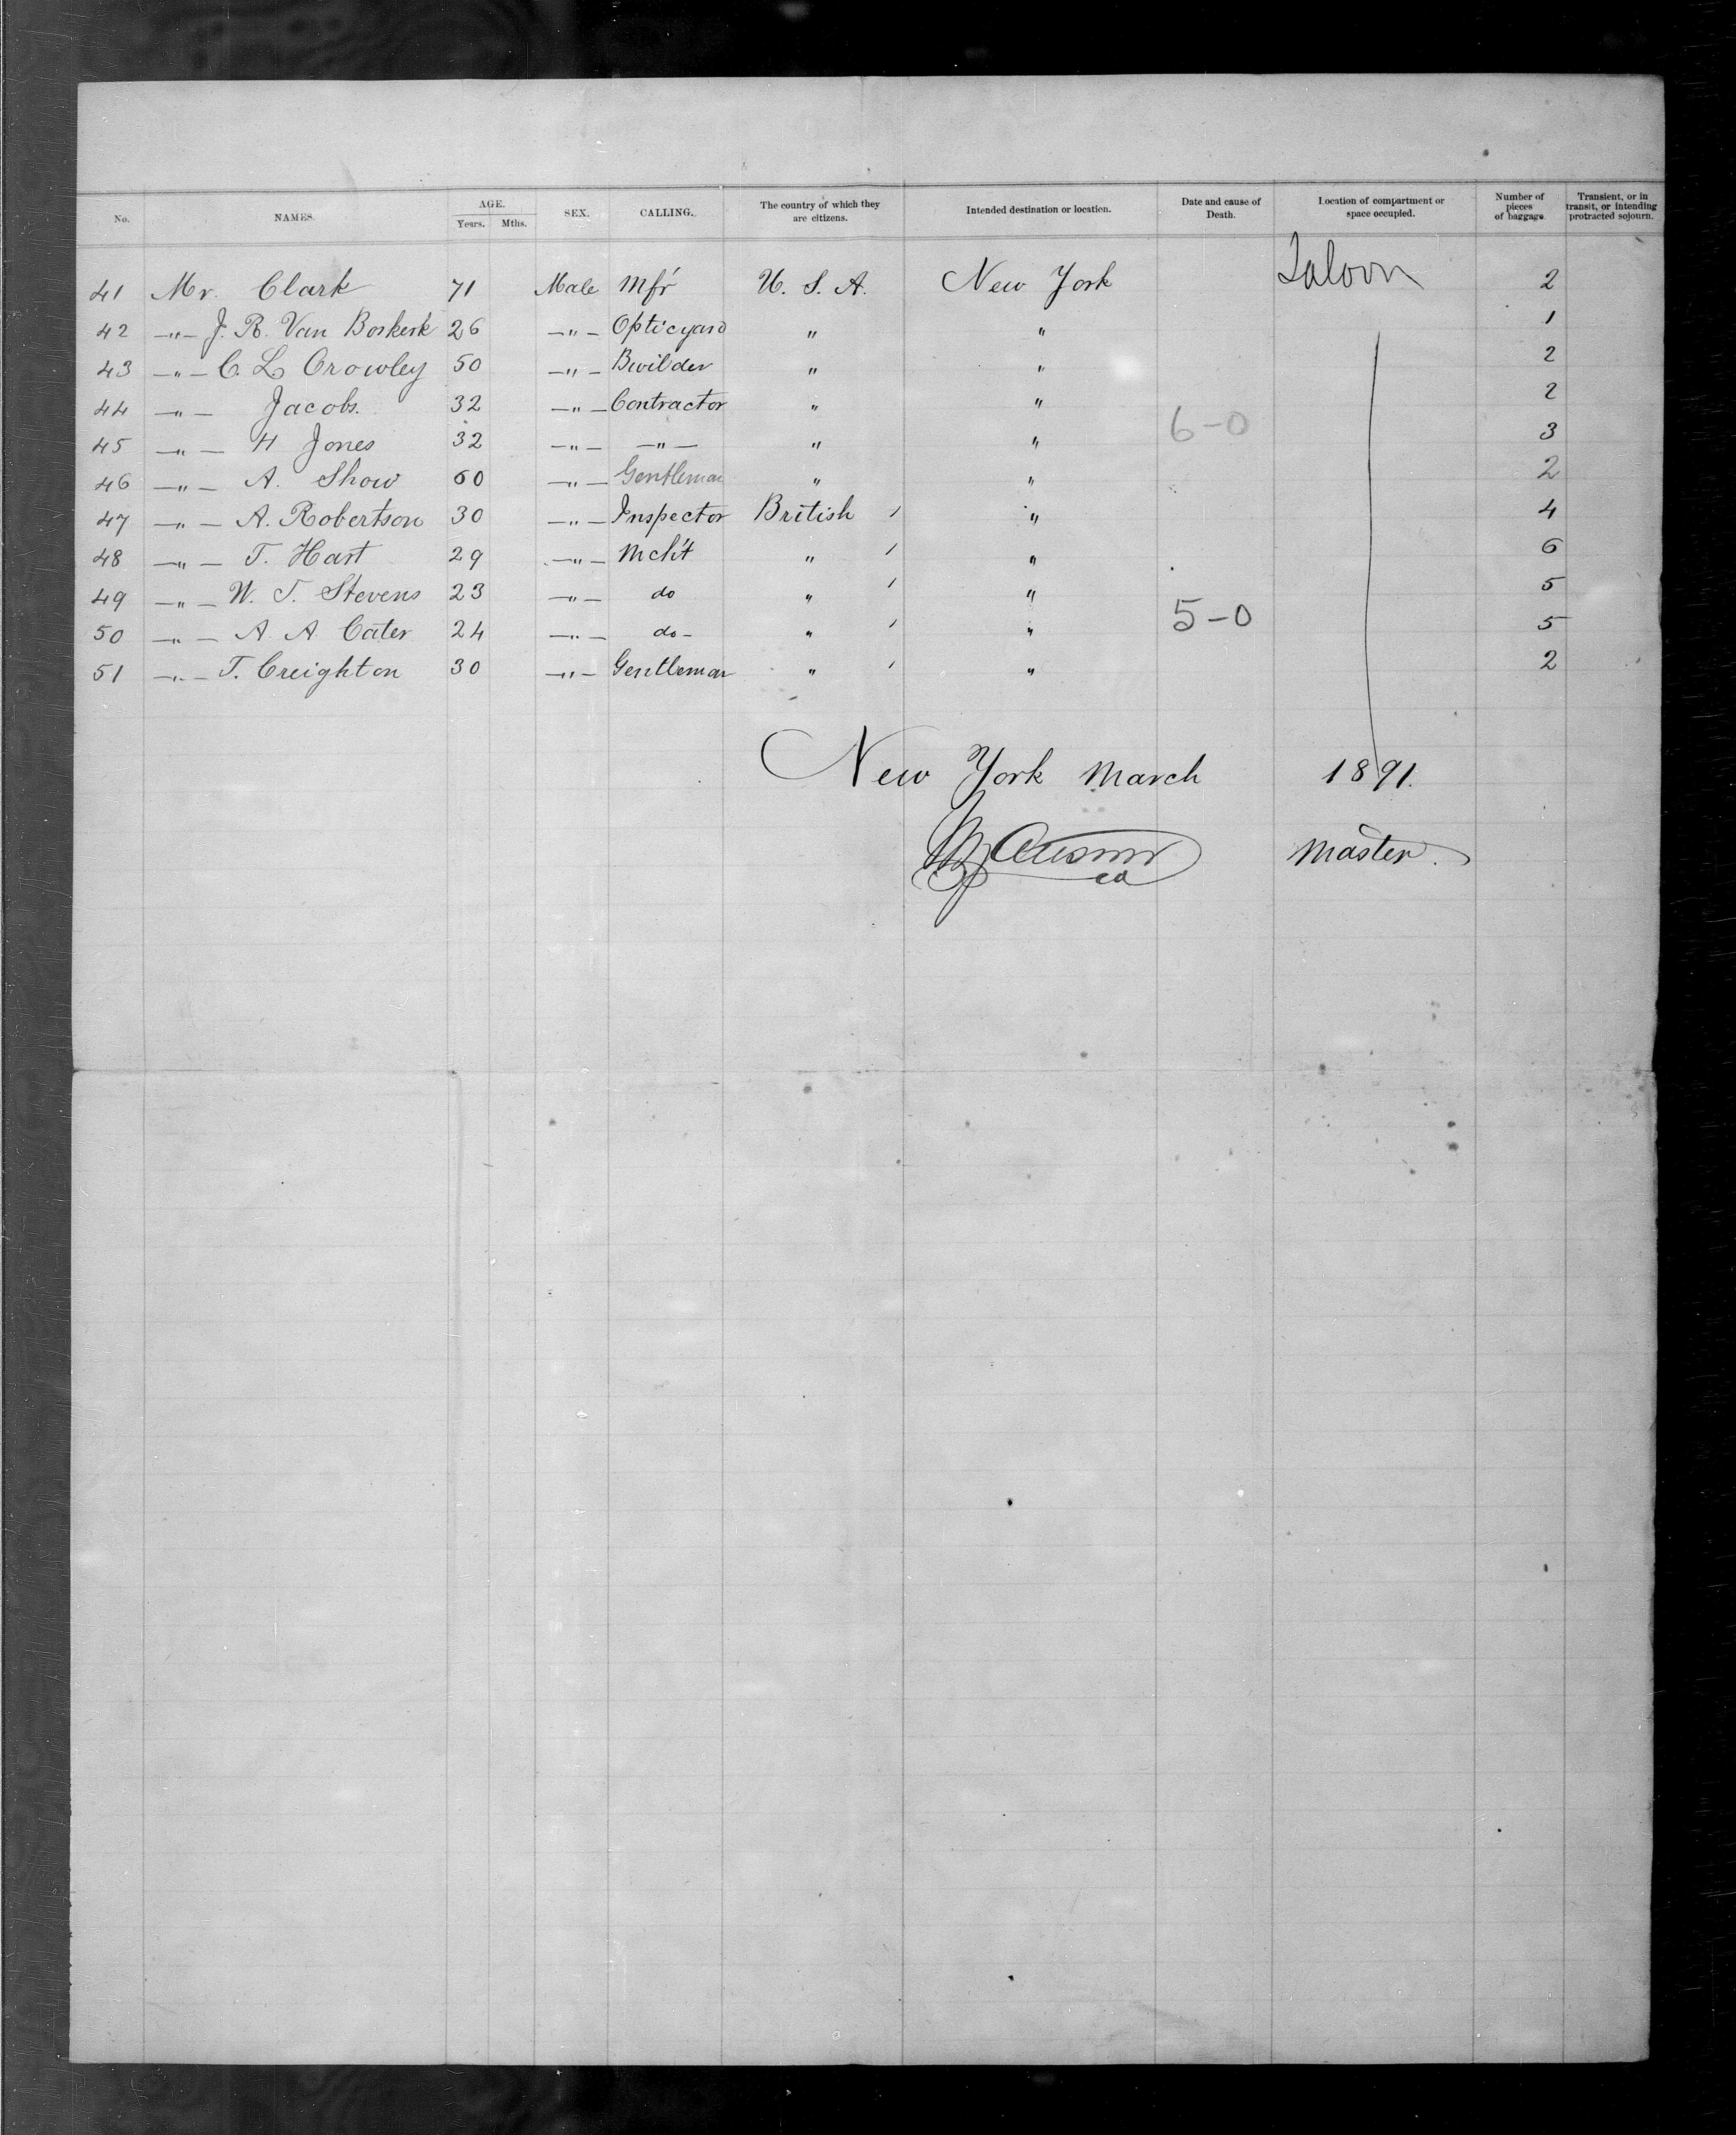 No. NAMES. AGE. Years. Mths. SEX. CALLING. The country of which they are citizens. Intended destination or location. Date and cause of Death. Location of compartment or space occupied. Number of pieces of baggage. Transient, or in transit, or intending protracted sojourn.
41 Mr. Clark 71 Male Mfr U. S. A. New York Saloon 2
42 —"— J. R. Van Boskerk 26 —"— Opticyard " " 1
43 —"— C. L Crowley 50 —"— Bwilder " " 2
44 —"— Jacobs. 32 —"— Contractor " " 2
45 —"— H Jones 32 —"— —"— " " 6-0 3
46 —"— A. Show 60 —"— Gentleman " " 2
47 —"— A. Robertson 30 —"— Inspector British / " 4
48 —"— T. Hart 29 —"— Mch't " / " 6
49 —"— W. T. Stevens 23 —"— do " / " 5
50 —"— A. A. Cater 24 —"— do- " / " 5-0 5
51 —"— T. Creighton 30 —"— Gentleman " / " 2
New York March 1891.
Master.